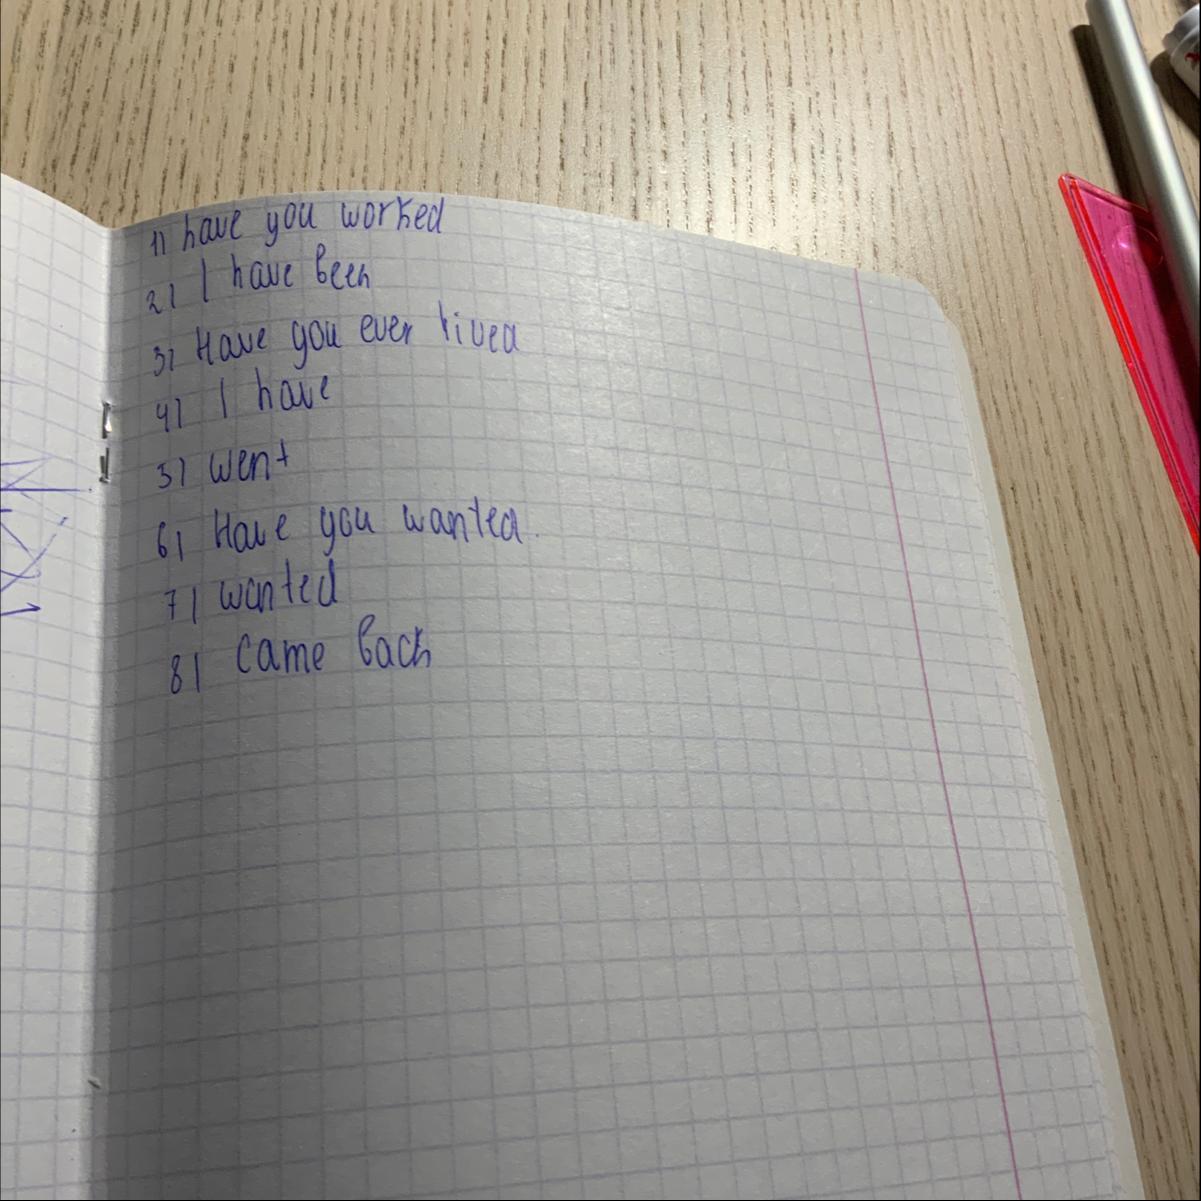 1) have you worked
2) I have been
3) Have you ever lived
4) I have
5) went
6) Have you wanted.
7) wanted
8) came back